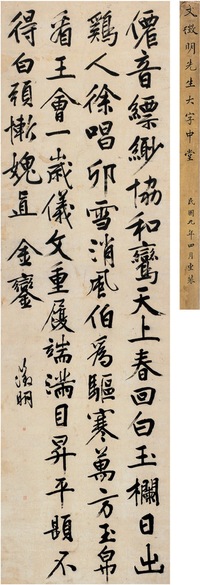 僊音縹緲協和鸞天上春回白玉欄日出
鷄人徐唱卯雪消風伯爲驅寒萬方玉帛
看王會一歲儀文重履端滿目昇平題不
得白頭慚愧直金鑾
徵明
文徵明先生大字中堂
民國九年四月